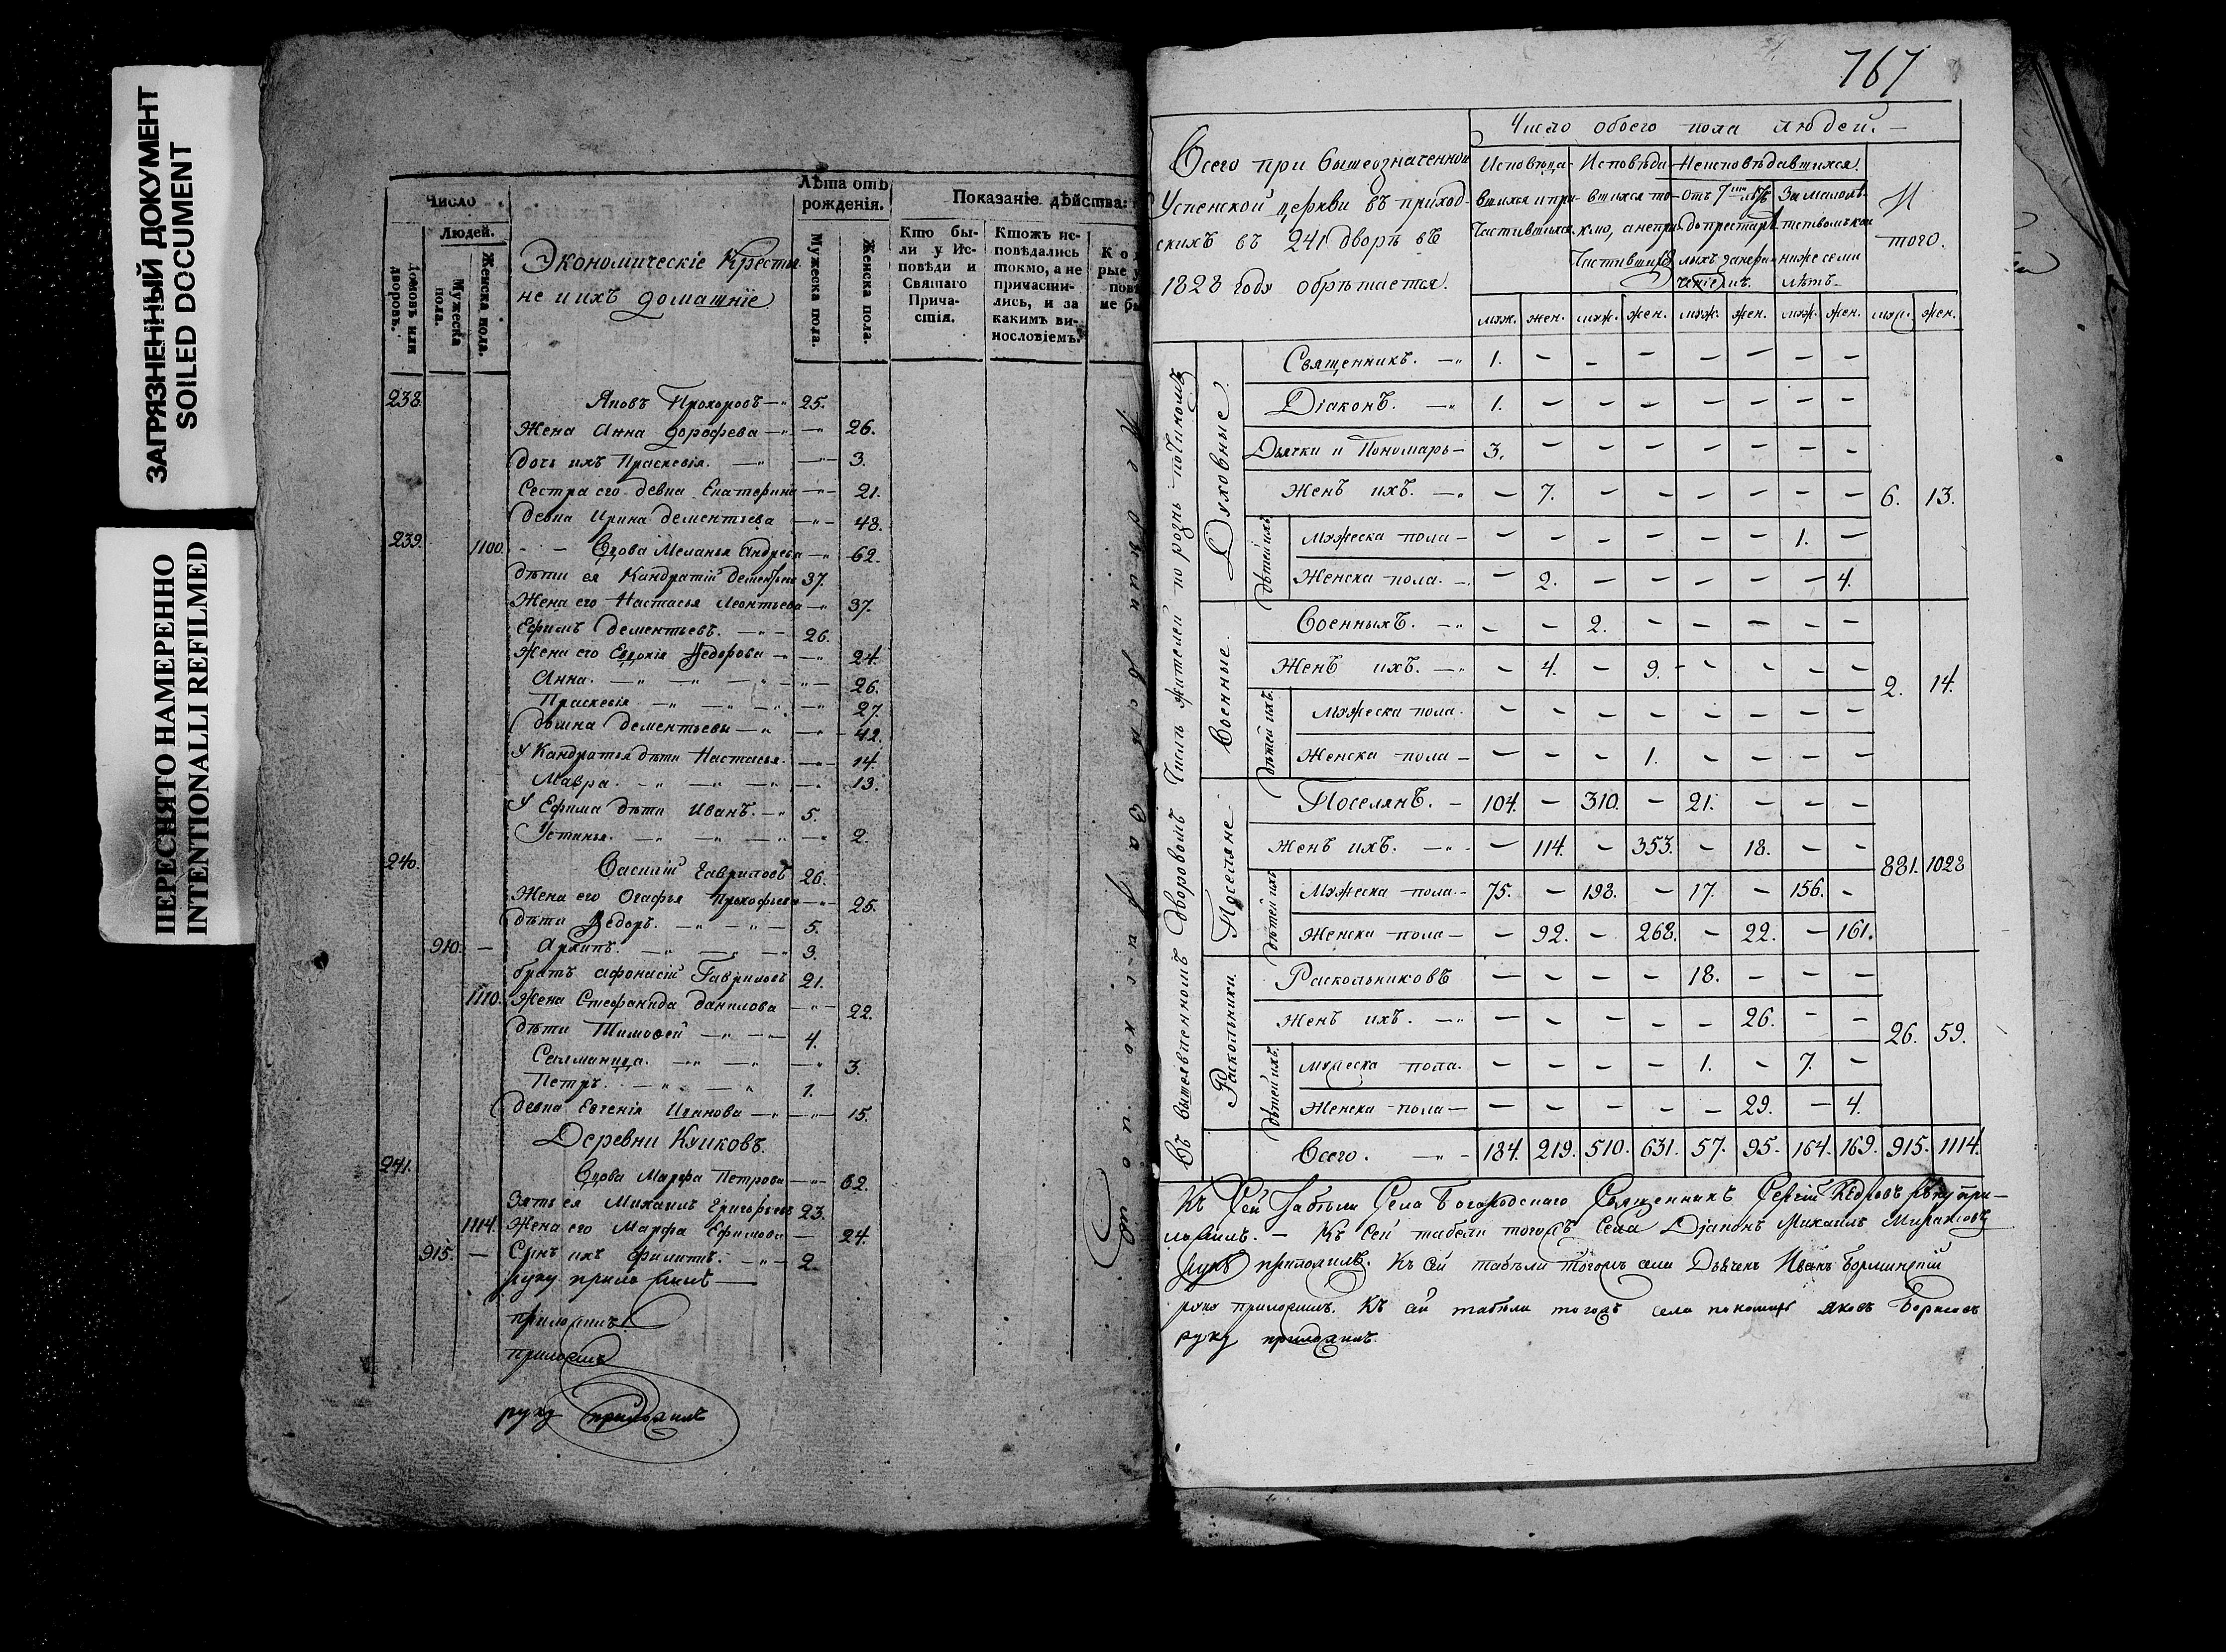 ЗАГРЯЗНЕННЫЙ ДОКУМЕНТ
SOILED DOCUMENT
ПЕРЕСНЯТО НАМЕРЕННО
INTENTIONALLI REFILMED
Число
Людей.
Домовъ или дворовъ.
Мужеска пола.
Женска пола.
Экономическіе Крестья
не и ихъ домашніе
Лѣта отъ рожденія.
Мужеска пола.
Женска пола.
Показаніе дѣйства:
Кто бы-
ли у Ис-
повѣди и
Святаго
Прича-
стія.
Ктожъ ис-
повѣдались
токмо, а не
причасти-
лись, и за
какимъ ви-
нословіемъ.
238. Яковъ Прохоровъ 25.
Жена Анна Дорофева 26.
дочь ихъ Праскевія. 3.
Сестра его девка Екатерина 21.
девка Ирина Дементьева 48.
239. 1100. Вдова Меланья Андрева 62.
дѣти ея Кандратій Дементьевъ 37.
Жена его Настасья Леонтьева 37.
Ефимъ Дементьевъ. 26.
Жена его Евдокія Федорова 24.
Анна. 26.
Праскевія 27.
Дементьевы 42.
У Кандратья дѣти Настасья. 14.
Мавра. 13.
У Ефима дѣти Иванъ. 5.
Устинья. 2.
240. Василий Гавриловъ 26.
Жена его Огафья Прокофьева 25.
дѣти Федоръ. 5.
910. Архипъ 3.
братъ Афонасій Гавриловъ 21.
1110. Жена Стефанида Данилова 22.
дѣти Тимофей 4.
Саломанида. 3.
Петръ. 1.
девка Евгенія Иванова 15.
Деревни Куликовъ.
241. Вдова Марфа Петрова 62.
Зять ея Михаилъ Григорьевъ 23.
1114. Жена его Марфа Ефимова 24.
915. Сынъ ихъ Филипъ. 2.
руку приложилъ
приложилъ
приложилъ
руку приложилъ
767
Всего при вышеозначенной
Успенской церкви въ приход-
скихъ въ 241 дворѣ въ
1828 годѣ обрѣтается.
Число обоего пола людей.
Исповѣда-
вшихся и при-
частившихся.
Исповѣда-
вшихся то-
кмо, а непри-
частившихся
Неисповѣдавшихся.
Отъ 7ми лѣтъ
до престарѣ-
лыхъ
За малолѣ-
тствомъ
ниже семи
лѣтъ
И
того.
муж. жен. муж. жен. муж. жен. муж. жен. муж. жен.
Въ вышеявленномъ дворовомъ числѣ жителей по рознь по чиномъ
Духовные
Священникъ. 1. – – – – – – –
Діаконъ. 1. – – – – – – –
Дьячки и Пономарь 3. – – – – – – –
Женъ ихъ. – 7. – – – – – – 6. 13.
дѣтей ихъ
Мужеска пола – – – – – – 1. –
Женска пола. – 2. – – – – – 4.
Военные
Военныхъ. – – 2. – – – – –
Женъ ихъ. – 4. – 9. – – – – 2. 14.
дѣтей ихъ
Мужеска пола. – – – – – – – –
Женска пола – – – 1. – – – –
Поселяне
Поселянъ. 104. – 310. – 21. – – –
Женъ ихъ. – 114. – 353. – 18. – – 881. 1028
дѣтей ихъ
Мужеска пола. 75. – 198. – 17. – 156. –
Женска пола – 92. – 268. – 22. – 161.
Раскольники.
Раскольниковъ – – – – 18. – – –
Женъ ихъ. – – – – – 26. – – 26. 59.
дѣтей ихъ
Мужеска пола. – – – – 1. – 7. –
Женска пола – – – – – 29. – 4.
Всего. 184. 219. 510. 631. 57. 95. 164. 169. 915. 1114.
Къ Сей табѣли Села Богородскаго Священникъ Сергій Кедровъ руку при-
ложилъ. – Къ сей табели тогожъ села Діаконъ Михаилъ
руку приложилъ. Къ сей табѣли тогожъ села Дьячекъ Иванъ
руку приложилъ. Къ сей табѣли тогожъ села пономарь Яковъ Борисовъ
руку приложилъ.